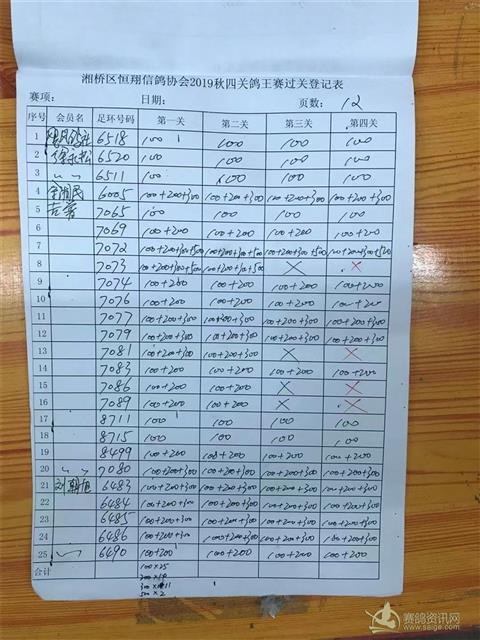 湘桥区恒翔信鸽协会2019秋四关鸽王赛过关登记表
赛项： 日期： 页数： 12
序号 会员名 足环号码 第一关 第二关 第三关 第四关
1 6518 100 100 100 100
2 徐永松 6520 100 100 100 100
3 〃 6511 100 100 100 100
4 6005 100+200+300 100+200+300 100+200+300 100+200+300
5 7065 100 100 100 100
6 7069 100+200 100+200 100+200 100+200
7 7072 100+200+300+500 100+200+300+500 100+200+300+500 100+200+300+500
8 7073 100+200+300+500 100+200+300+500 × ×
9 7074 100+200 100+200 100+200 100+200
10 7076 100+200 100+200 100+200 100+200
11 7077 100+200+300 100+200+300 100+200+300 100+200+300
12 7079 100+200+300 100+200+300 100+200+300 100+200+300
13 7081 100+200+300 100+200+300 × ×
14 7083 100+200 100+200 100+200 100+200
15 7086 100+200 100+200 × ×
16 7089 100+200 100+200 × ×
17 8711 100 100 100 100
18 8715 100 100 100 100
19 8499 100+200 100+200 100+200 100+200
20 〃 7080 100+200+300 100+200+300 100+200+300 100+200+300
21 刘朝旭 6483 100+200+300 100+200+300 100+200+300 100+200+300
22 6484 100+200+300 100+200+300 100+200+300 100+200+300
23 6485 100+200+300 100+200+300 100+200+300 100+200+300
24 6486 100+200+300 100+200+300 100+200+300 100+200+300
25 〃 6490 100+200 100+200 100+200 100+200
合计
100×25
200×19
300×11
500×2
赛鸽资讯网
www.saige.com